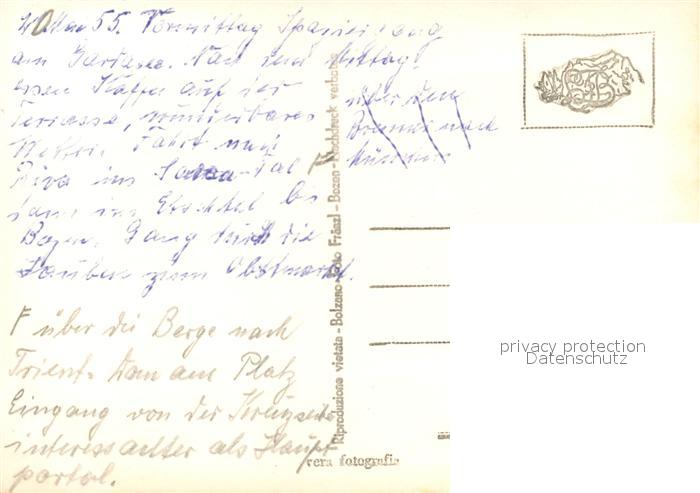 Mai 55. Vormittag Spaziergang
am Gardasee. Nach dem Mittag-
essen Kaffee auf der
Terrasse, wunderbares
Wetter. Fahrt nach
Riva ins Sarca-Tal F
dann im Etschtal bis
Bozen. Gang durch die
Lauben zum Obstmarkt.
über den
Brenner nach
München
F über die Berge nach
Trient. Dom am Platz
Eingang von der Kreuzseite
interessanter als Haupt-
portal.
Riproduzione vietata - Bolzano - Foto Fränzl - Bozen - Nachdruck verboten
vera fotografia
privacy protection
Datenschutz